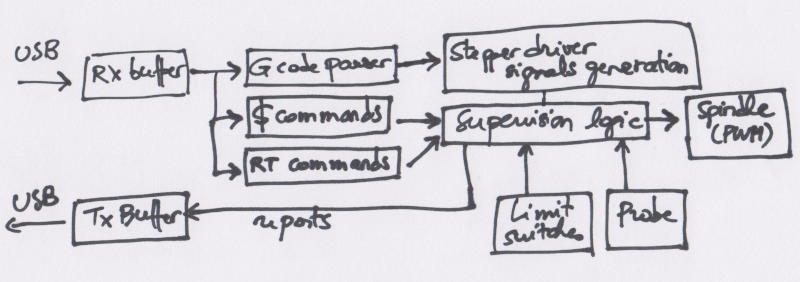 USB
Rx buffer
G code parser
Stepper driver
signals generation
$ commands
Supervision logic
Spindle
(PWM)
RT commands
USB
Tx Buffer
reports
Limit
switches
Probe